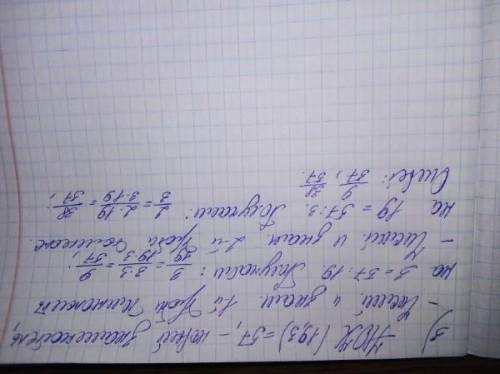 3) НОК (19,3) = 57, – новый знаменатель,
– и знам 1-й дроби
на 3 = 57:19. Получаем: 3/19 = 3·3/19·3 = 9/57;
– и знам 2-й дроби
на 19 = 57:3. Получаем: 2/3 = 2·19/3·19 = 38/57;
Ответ: 9/57, 38/57